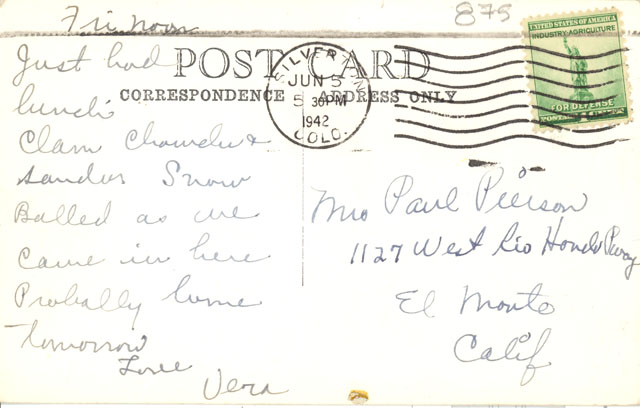 Fri noon
875
Just had
lunch
Clam Chowder &
sandws Snow
Balled as we
came in here
Probally home
tomorrow
Love
Vera
POST CARD
CORRESPONDENCE ADDRESS ONLY
SILVERTON
JUN 5
5 30PM
1942
COLO.
UNITED STATES OF AMERICA
INDUSTRY-AGRICULTURE
FOR DEFENSE
Mrs Paul Pierson
1127 West Rio Hondo Pkwy
El Monte
Calif